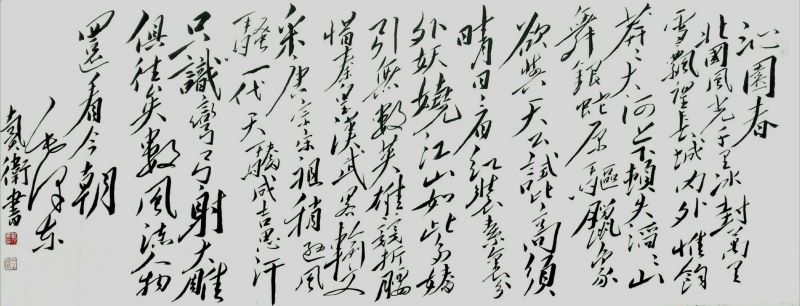 沁園春
北國風光千里冰封萬里
雪飄望長城內外惟餘
莽々大河上下頓失滔々山
舞銀蛇原馳臘象
欲與天公試比高須
晴日看紅裝素裹分
外妖嬈江山如此多嬌
引無數英雄競折腰
惜秦皇漢武略輸文
采唐宗宋祖稍遜風
騷一代天驕成吉思汗
只識彎弓射大雕
俱往矣數風流人物
還看今朝
毛澤東
衛書